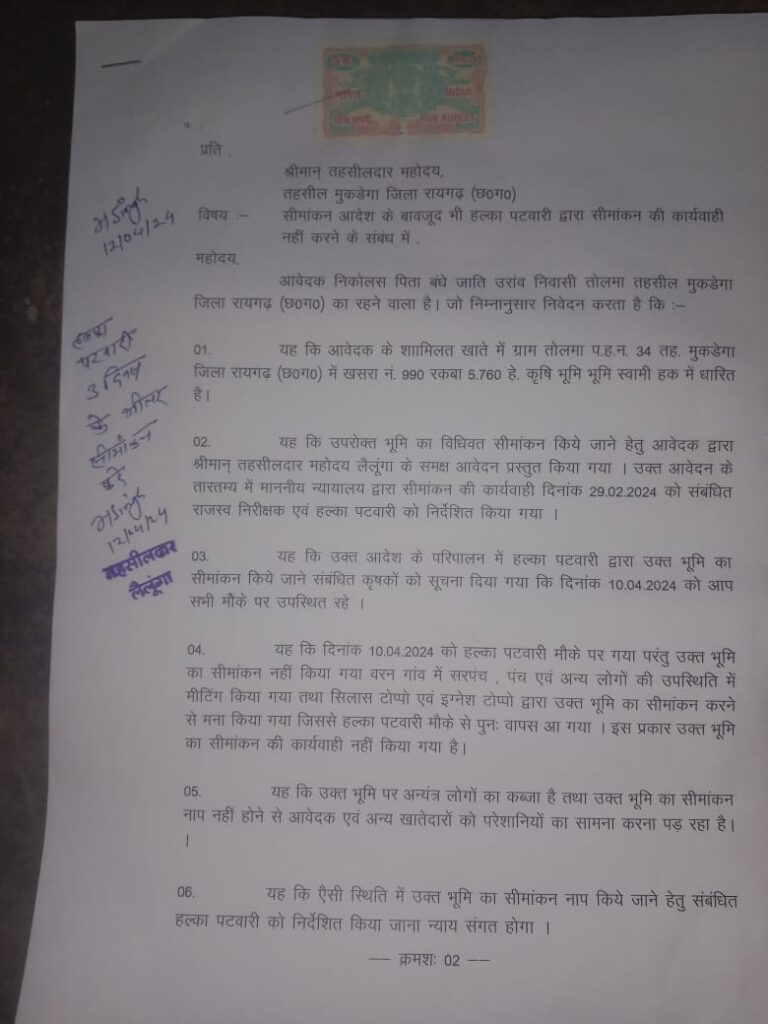 भारत
INDIA
पाँच रुपये
FIVE RUPEES
प्रति ,
श्रीमान् तहसीलदार महोदय,
तहसील मुकडेगा जिला रायगढ़ (छ0ग0)
विषय :– सीमांकन आदेश के बावजूद भी हल्का पटवारी द्वारा सीमांकन की कार्यवाही
नहीं करने के संबंध में .
महोदय,
आवेदक निकोलस पिता बंधे जाति उरांव निवासी तोलमा तहसील मुकडेगा
जिला रायगढ़ (छ0ग0) का रहने वाला है। जो निम्नानुसार निवेदन करता है कि :–
01. यह कि आवेदक के शाामिलत खाते में ग्राम तोलमा प.ह.न. 34 तह. मुकडेगा
जिला रायगढ़ (छ0ग0) में खसरा नं. 990 रकबा 5.760 हे. कृषि भूमि भूमि स्वामी हक में धारित
है।
02. यह कि उपरोक्त भूमि का विधिवत सीमांकन किये जाने हेतु आवेदक द्वारा
श्रीमान् तहसीलदार महोदय लैलूंगा के समक्ष आवेदन प्रस्तुत किया गया । उक्त आवेदन के
तारतम्य में माननीय न्यायालय द्वारा सीमांकन की कार्यवाही दिनांक 29.02.2024 को संबंधित
राजस्व निरीक्षक एवं हल्का पटवारी को निर्देशित किया गया ।
03. यह कि उक्त आदेश के परिपालन में हल्का पटवारी द्वारा उक्त भूमि का
सीमांकन किये जाने संबंधित कृषकों को सूचना दिया गया कि दिनांक 10.04.2024 को आप
सभी मौके पर उपस्थित रहे ।
04. यह कि दिनांक 10.04.2024 को हल्का पटवारी मौके पर गया परंतु उक्त भूमि
का सीमांकन नहीं किया गया वरन गांव में सरपंच , पंच एवं अन्य लोगों की उपस्थिति में
मीटिंग किया गया तथा सिलास टोप्पो एवं इग्नेश टोप्पो द्वारा उक्त भूमि का सीमांकन करने
से मना किया गया जिससे हल्का पटवारी मौके से पुनः वापस आ गया । इस प्रकार उक्त भूमि
का सीमांकन की कार्यवाही नहीं किया गया है।
05. यह कि उक्त भूमि पर अन्यंत्र लोगों का कब्जा है तथा उक्त भूमि का सीमांकन
नाप नहीं होने से आवेदक एवं अन्य खातेदारों को परेशानियों का सामना करना पड़ रहा है।
।
06. यह कि ऐसी स्थिति में उक्त भूमि का सीमांकन नाप किये जाने हेतु संबंधित
हल्का पटवारी को निर्देशित किया जाना न्याय संगत होगा ।
–– क्रमशः 02 ––
12/04/24
हल्का
पटवारी
3 दिवस
के भीतर
सीमांकन
करें
12/04/24
तहसीलदार
लैलूंगा